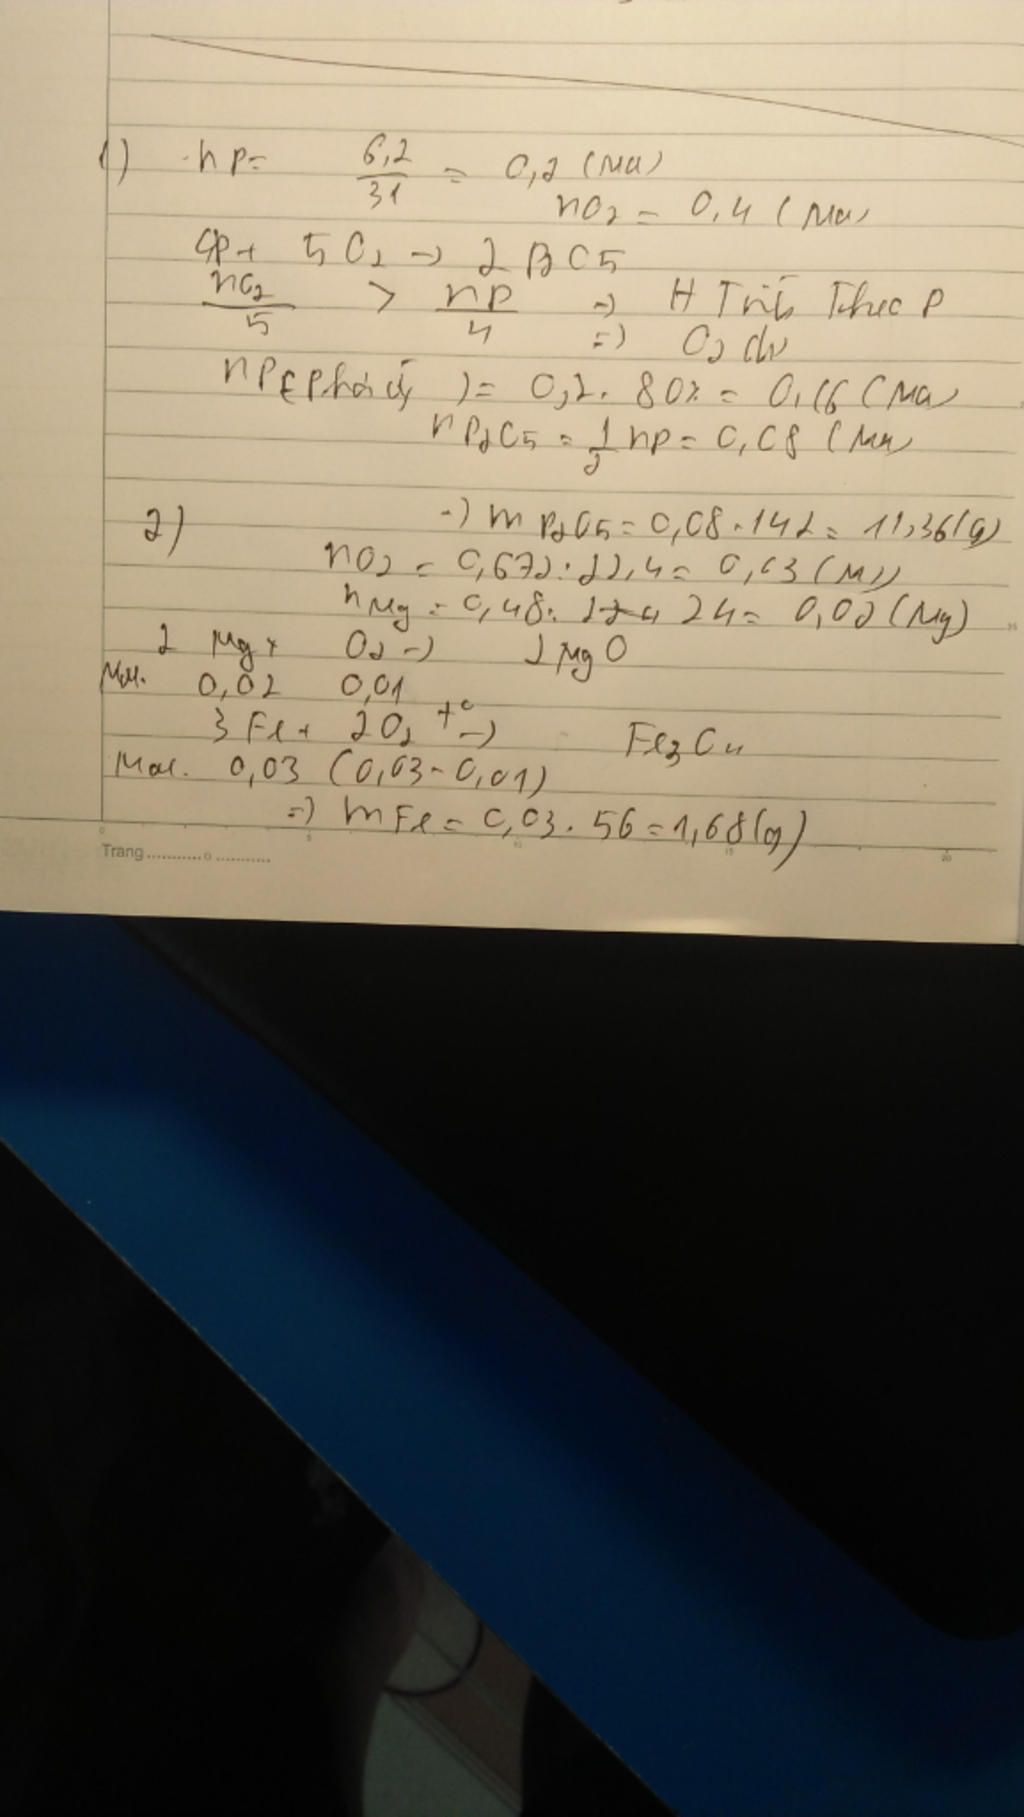 1) nP = 6,2/31 = 0,2 (Mol)
nO2 = 0,4 (Mol)
4P + 5O2 -> 2P2O5
nO2/5 > nP/4 => H Trình Theo P
=> O2 dư
nP(Phản ứng) = 0,2 . 80% = 0,16 (Mol)
nP2O5 = 1/2 nP = 0,08 (Mol)
-> mP2O5 = 0,08 . 142 = 11,36 (g)
2)
nO2 = 0,672 : 22,4 = 0,03 (Mol)
nMg = 0,48 : 24 = 0,02 (Mg)
2 Mg + O2 -> 2 MgO
Mol. 0,02 0,01
3Fe + 2O2 t° -> Fe3O4
Mol. 0,03 (0,03 - 0,01)
=> mFe = 0,03 . 56 = 1,68 (g)
Trang